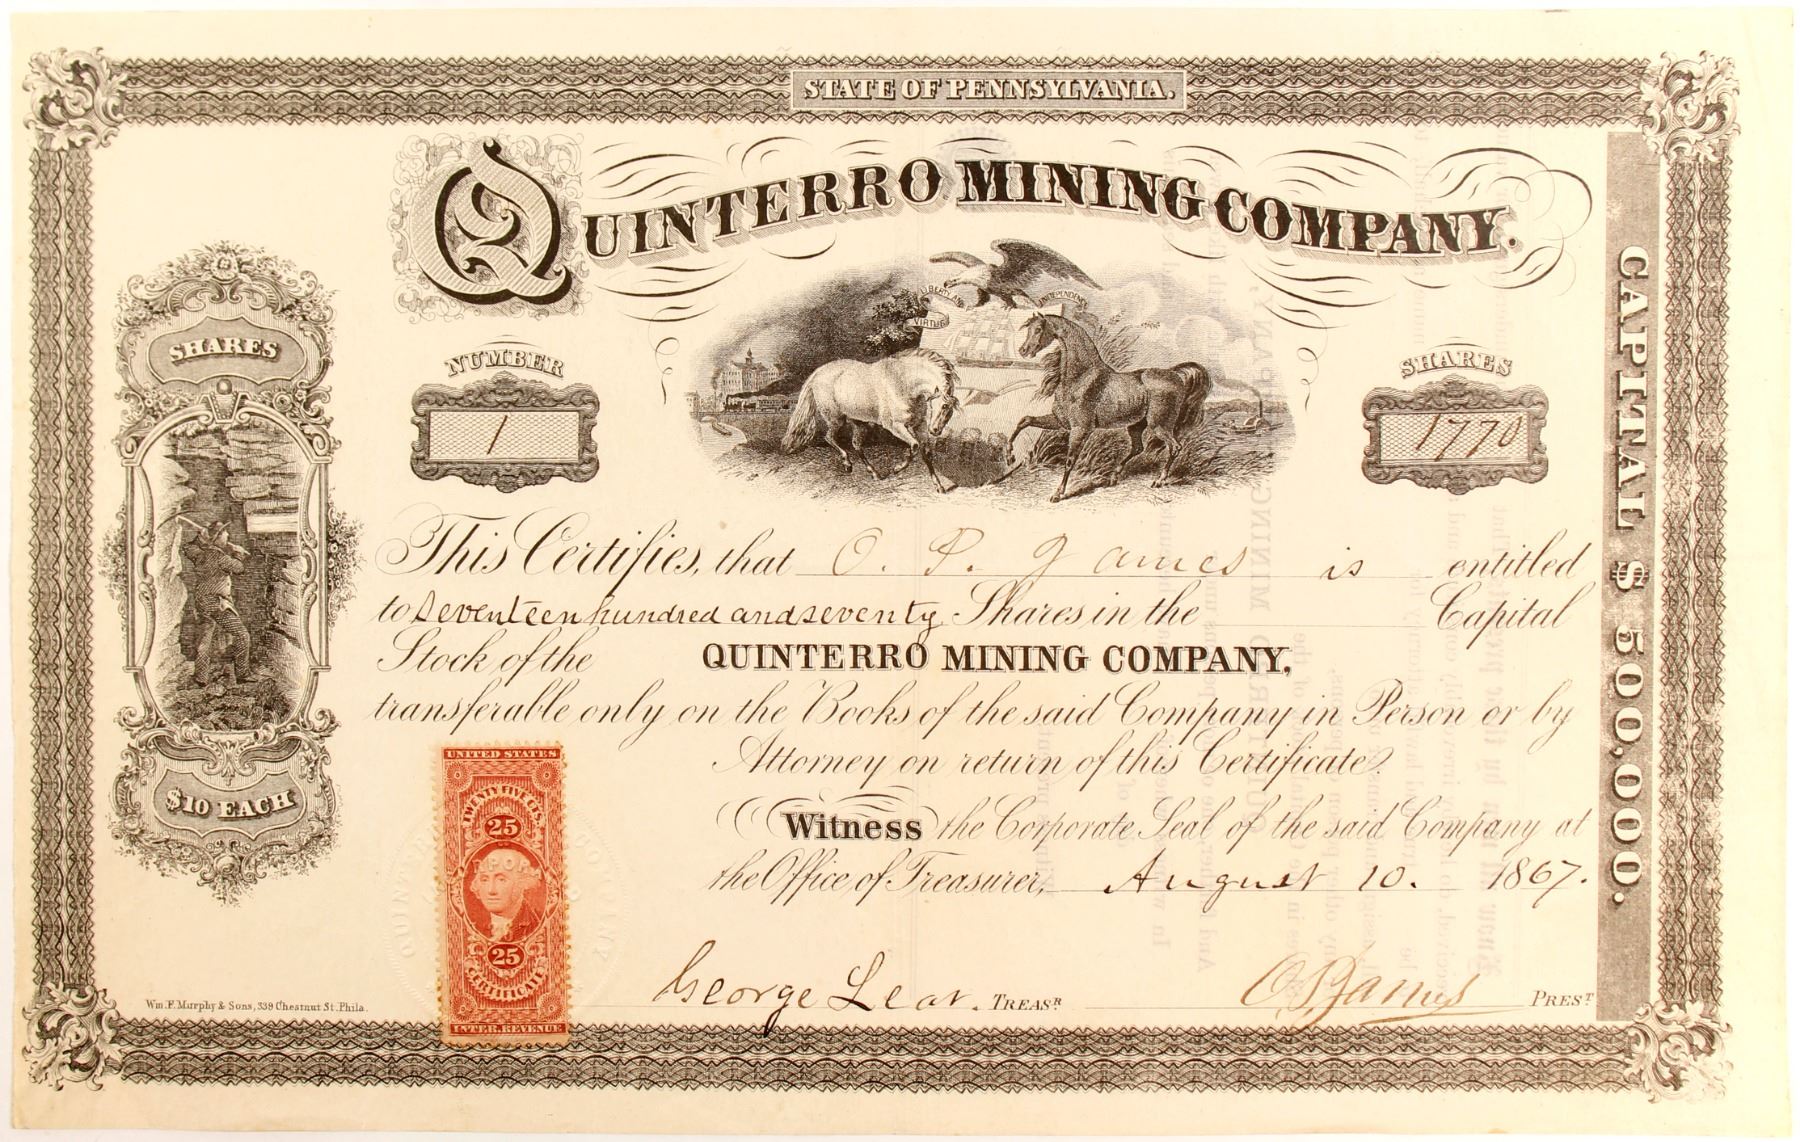 STATE OF PENNSYLVANIA.
QUINTERRO MINING COMPANY.
LIBERTY AND INDEPENDENCE
VIRTUE
SHARES
NUMBER
1
SHARES
1770
CAPITAL $ 500,000.
This Certifies, that O. P. James is entitled
to Seventeen hundred and seventy Shares in the Capital
Stock of the QUINTERRO MINING COMPANY,
transferable only on the Books of the said Company in Person or by
Attorney on return of this Certificate.
$10 EACH
Witness the Corporate Seal of the said Company at
the Office of Treasurer, August 10. 1867.
UNITED STATES
TWENTY FIVE CTS.
25
25
CERTIFICATE
INTER. REVENUE
George Lear. TREASR
O P James PREST
Wm. F. Murphy & Sons, 339 Chestnut St. Phila.